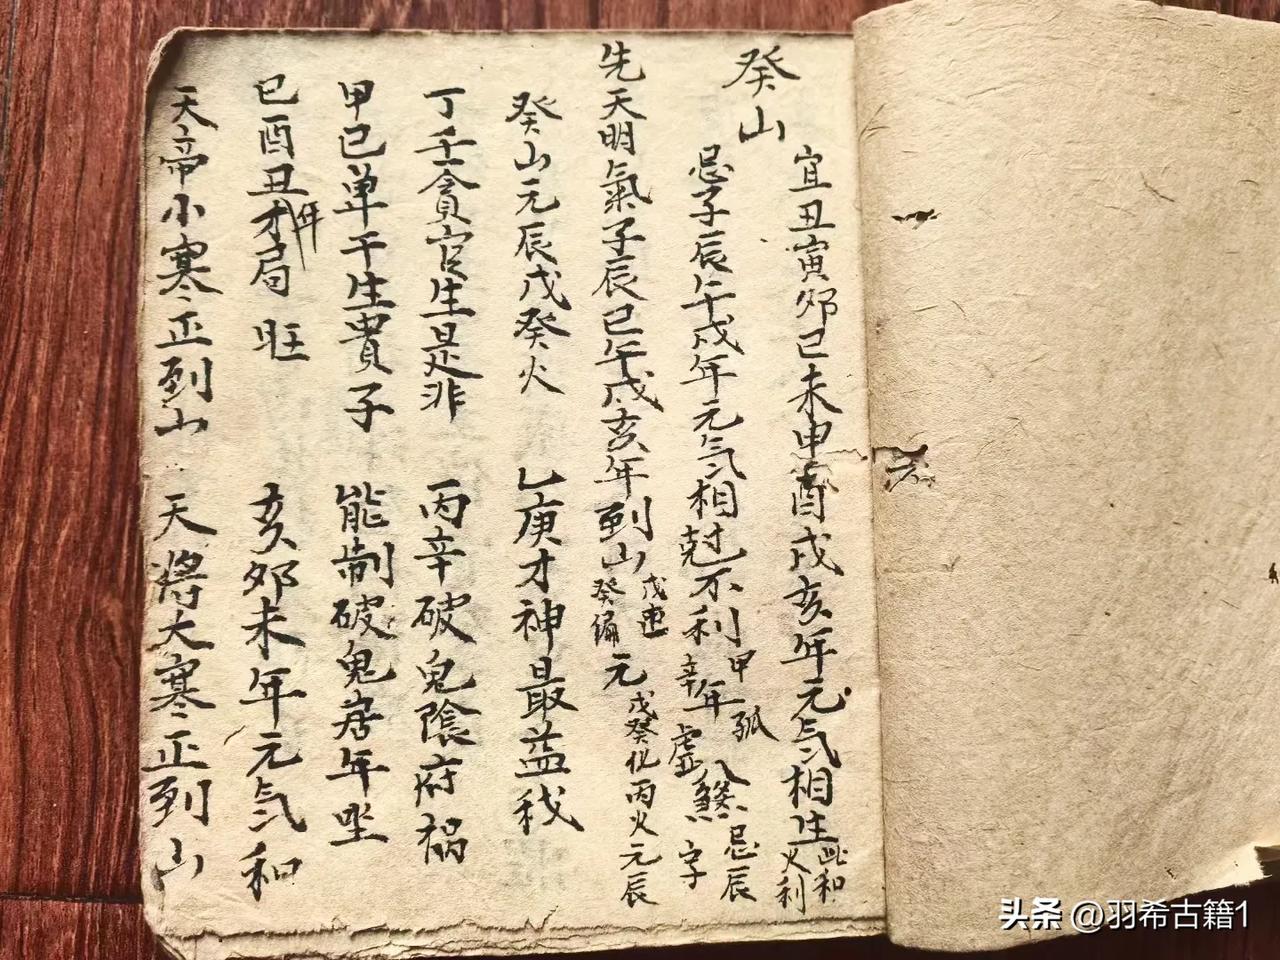 癸山
宜丑寅夘巳未申酉戌亥年元氣相生比和火利
忌子辰午戌年元氣相尅不利甲年孤辛虛八煞忌辰字
先天明氣子辰巳午戌亥年到山戊癸遁元戊癸化丙火元辰
癸山元辰戊癸火 乙庚才神最益我
丁壬貪官生是非 丙辛破鬼陰府禍
甲己单干生貴子 能制破鬼岩年坐
巳酉丑年才局旺 亥夘未年元氣和
天帝小寒正到山 天將大寒正到山
头条 @羽希古籍1